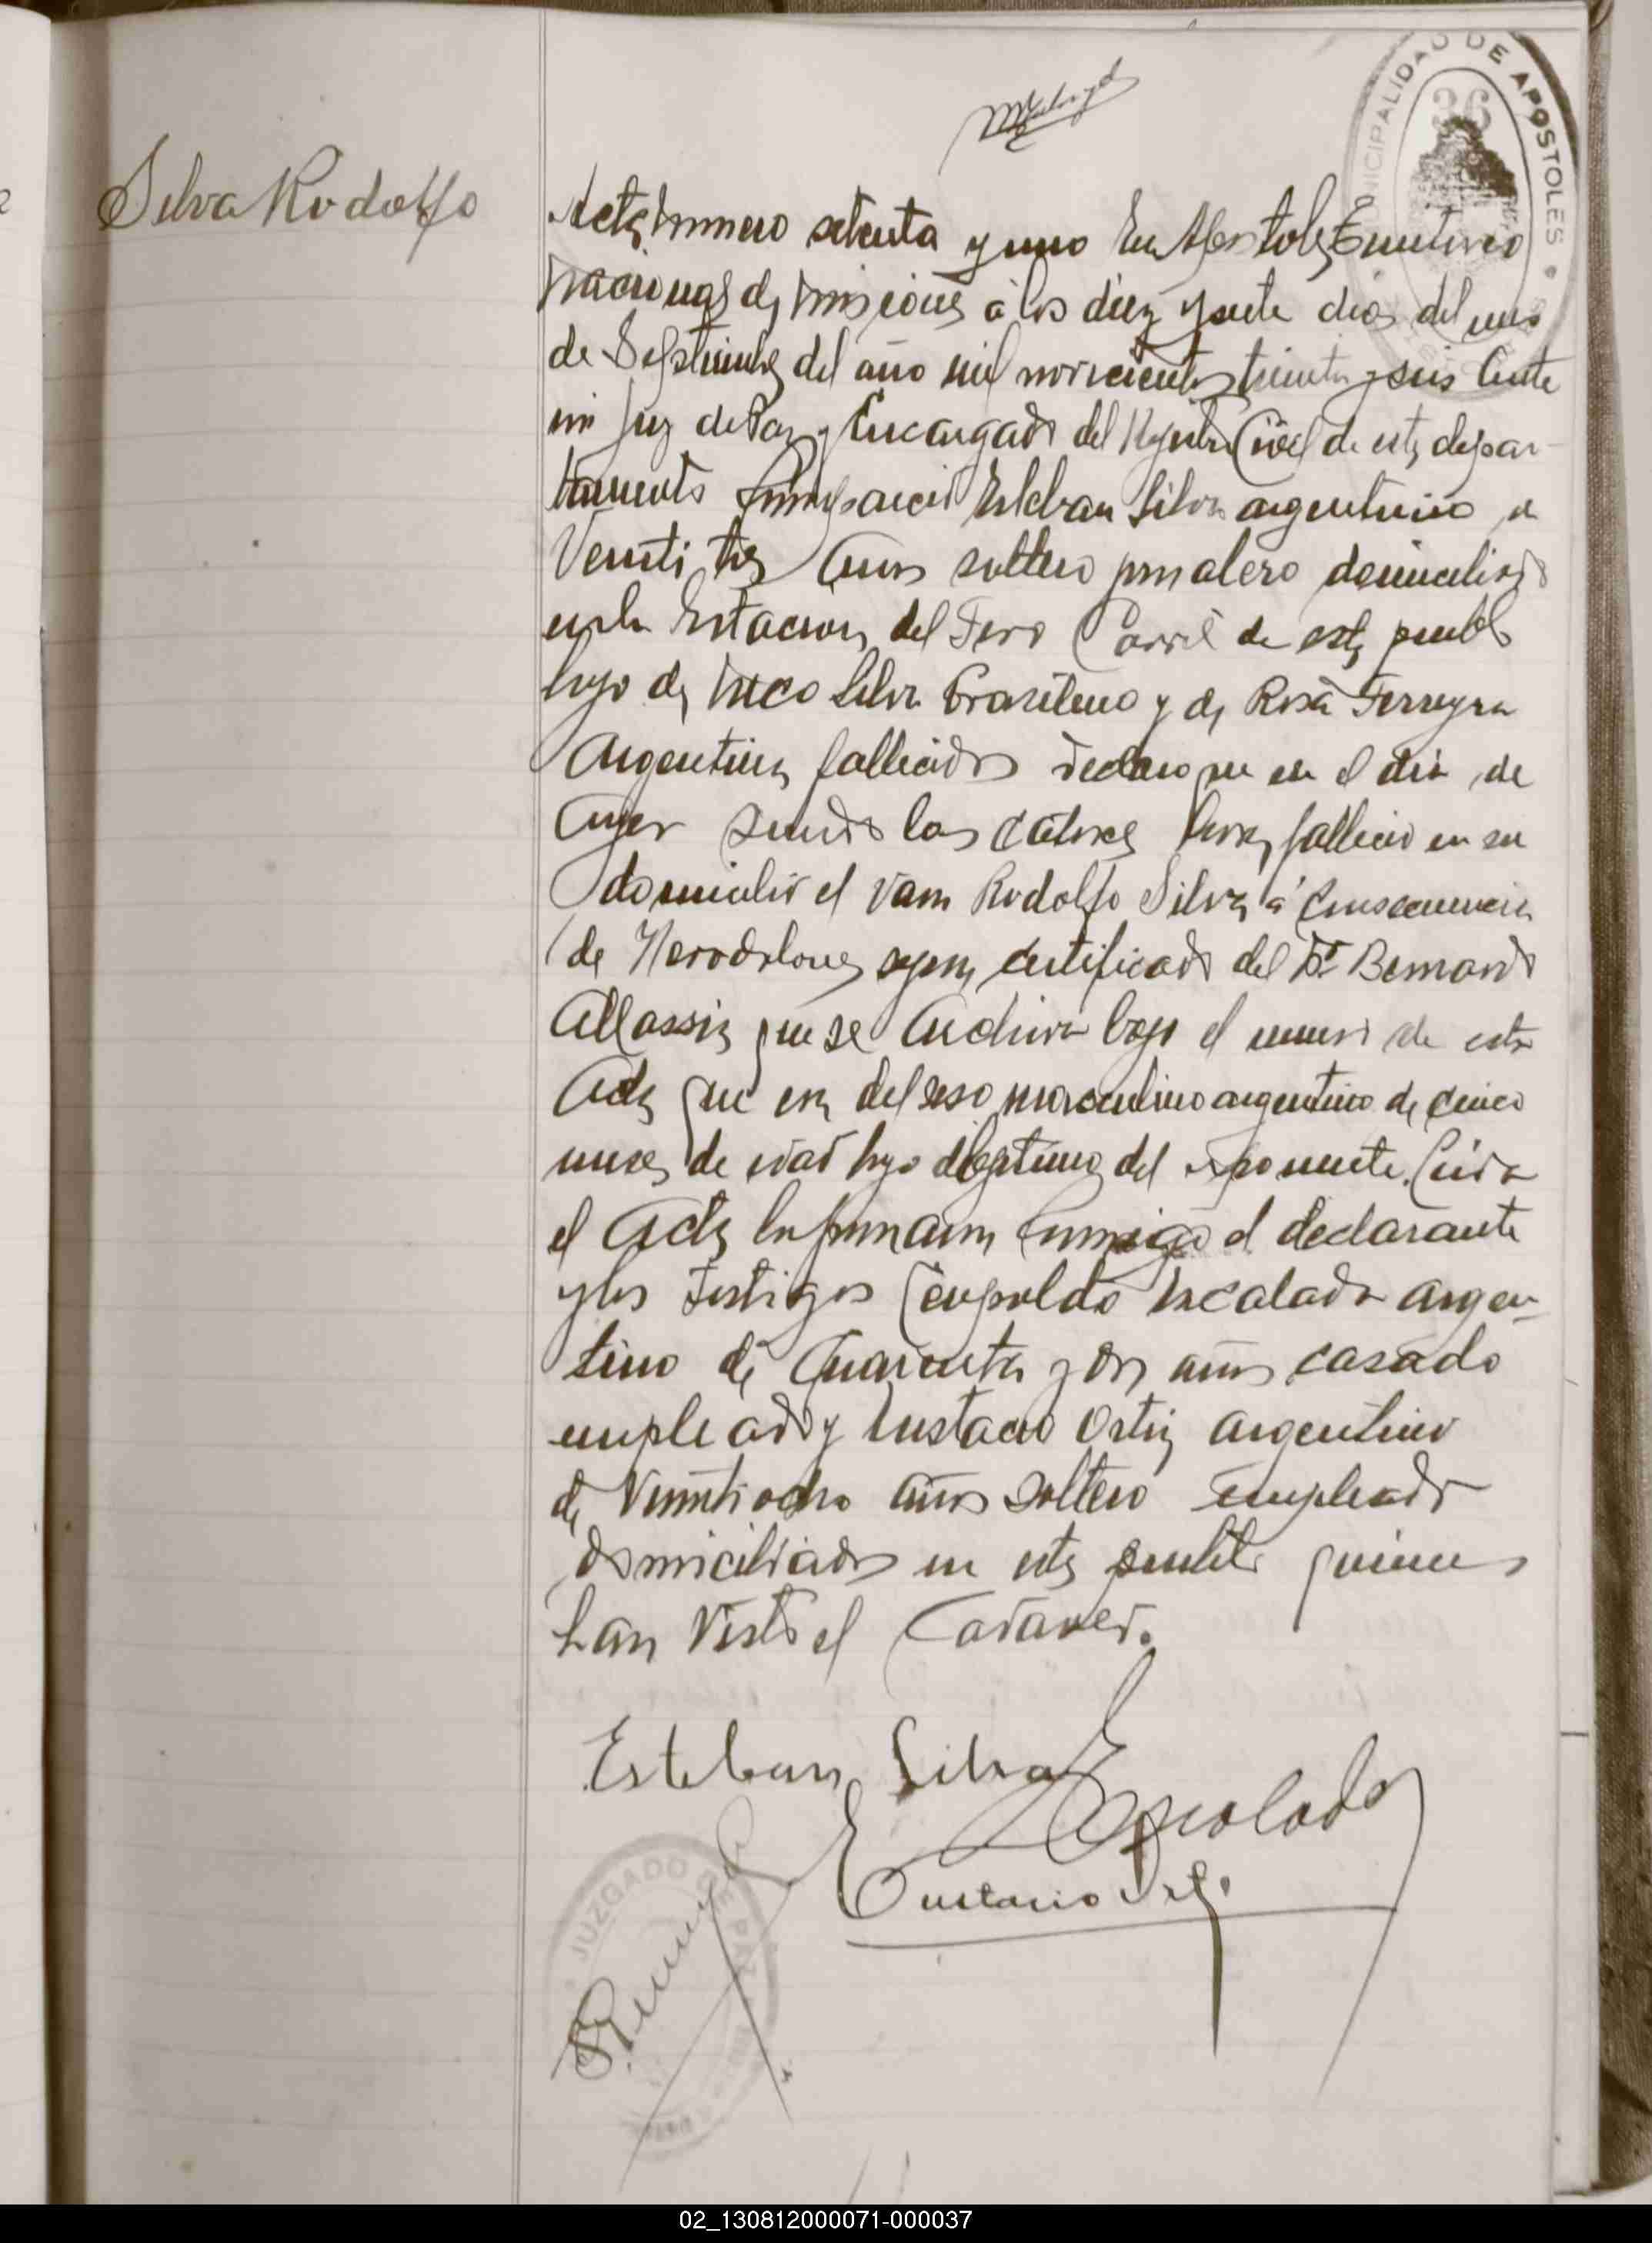 MUNICIPALIDAD DE APOSTOLES
36
Silva Rodolfo
Acta numero setenta y uno En Apostoles Territorio
Nacional de Misiones á los diez y siete dias del mes
de Septiembre del año mil novecientos treinta y seis Ante
mi Juez de Paz y Encargado del Registro Civil de este depar-
tamento Comparecio Esteban Silva argentino de
Veinti tres Años soltero jornalero domiciliado
en la Estacion del Ferro Carril de este pueblo
hijo de Silva Brasilero y de Rosa Ferreyra
Argentina fallecidos declaro que en el dia de
Ayer siendo las catorce horas fallecio en su
domicilio el Varon Rodolfo Silva á Consecuencia
de según certificado del Dr Bernardo
Allassia que se Archiva bajo el numero de esta
Acta que era del sexo masculino argentino de cinco
meses de edad hijo del exponente. Leida
el Acta la firmaron Conmigo el declarante
y los Testigos Leopoldo Escalada argen-
tino de Cuarenta y dos años casado
empleado y Eustacio Ortiz argentino
de Veintiocho años Soltero empleado
domiciliados en este pueblo quienes
han Visto el Cadaver.
Esteban Silva
Escalada
Eustacio Ortiz
JUZGADO DE PAZ
02_130812000071-000037